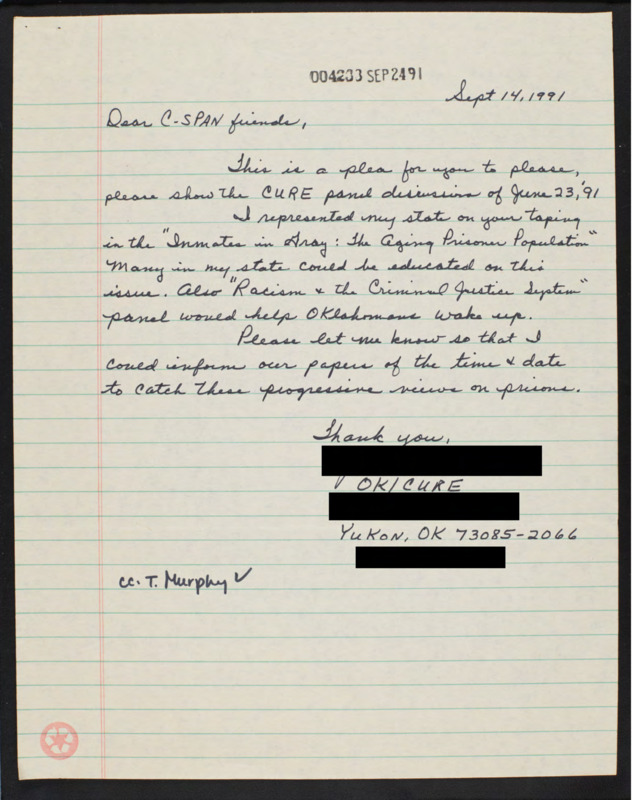 004233 SEP 24 91
Sept 14, 1991
Dear C-SPAN friends,
This is a plea for you to please,
please show the CURE panel discussion of June 23, '91
I represented my state on your taping
in the "Inmates in Gray: The Aging Prisoner Population"
Many in my state could be educated on this
issue. Also "Racism & the Criminal Justice System"
panel would help Oklahomans wake up.
Please let me know so that I
could inform our papers of the time & date
to catch these progressive views on prisons.
Thank you,
OK/CURE
Yukon, OK 73085-2066
cc. T. Murphy ✓